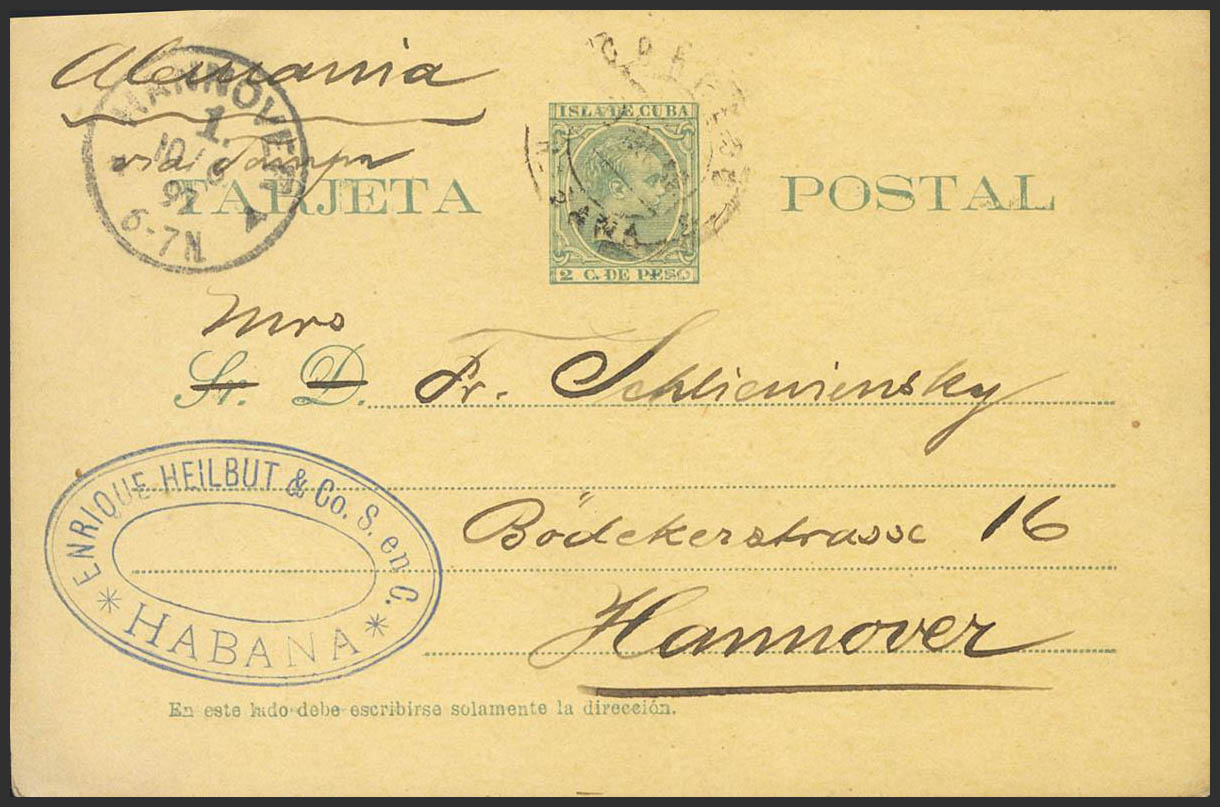 Alemania
via Tampa
HANNOVER
1.
10/6
97
6-7N
ISLA DE CUBA
2 C. DE PESO
TARJETA POSTAL
Mrs
Sr. D. Fr. Schliewiensky
Bödekerstrasse 16
Hannover
ENRIQUE HEILBUT & Co. S. en C.
* HABANA *
En este lado debe escribirse solamente la dirección.